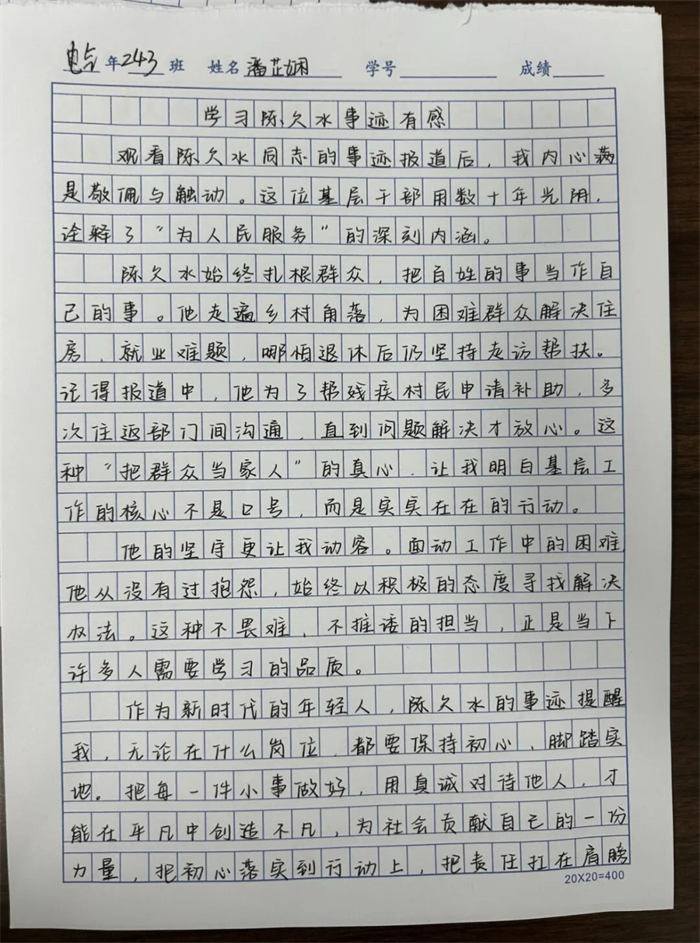 电气年243班 姓名潘芷娴 学号 成绩
学习陈久水事迹有感
观看陈久水同志的事迹报道后，我内心满
是敬佩与触动。这位基层干部用数十年光阴，
诠释了“为人民服务”的深刻内涵。
陈欠水始终扎根群众，把百姓的事当作自
己的事。他走遍乡村角落，为困难群众解决住
房、就业难题，哪怕退休后仍坚持走访帮扶。
记得报道中，他为了帮残疾村民申请补助，多
次往返部门间沟通，直到问题解决才放心。这
种“把群众当家人”的真心，让我明白基层工
作的核心不是口号，而是实实在在的行动。
他的坚守更让我动容。面动工作中的困难
他从没有过抱怨，始终以积极的态度寻找解决
办法。这种不畏难、不推诿的担当，正是当下
许多人需要学习的品质。
作为新时代的年轻人，陈欠水的事迹提醒
我，无论在什么岗位，都要保持初心、脚踏实
地。把每一件小事做好，用真诚对待他人，才
能在平凡中创造不凡，为社会贡献自己的一份
力量，把初心落实到行动上，把责任扛在肩膀
20X20=400